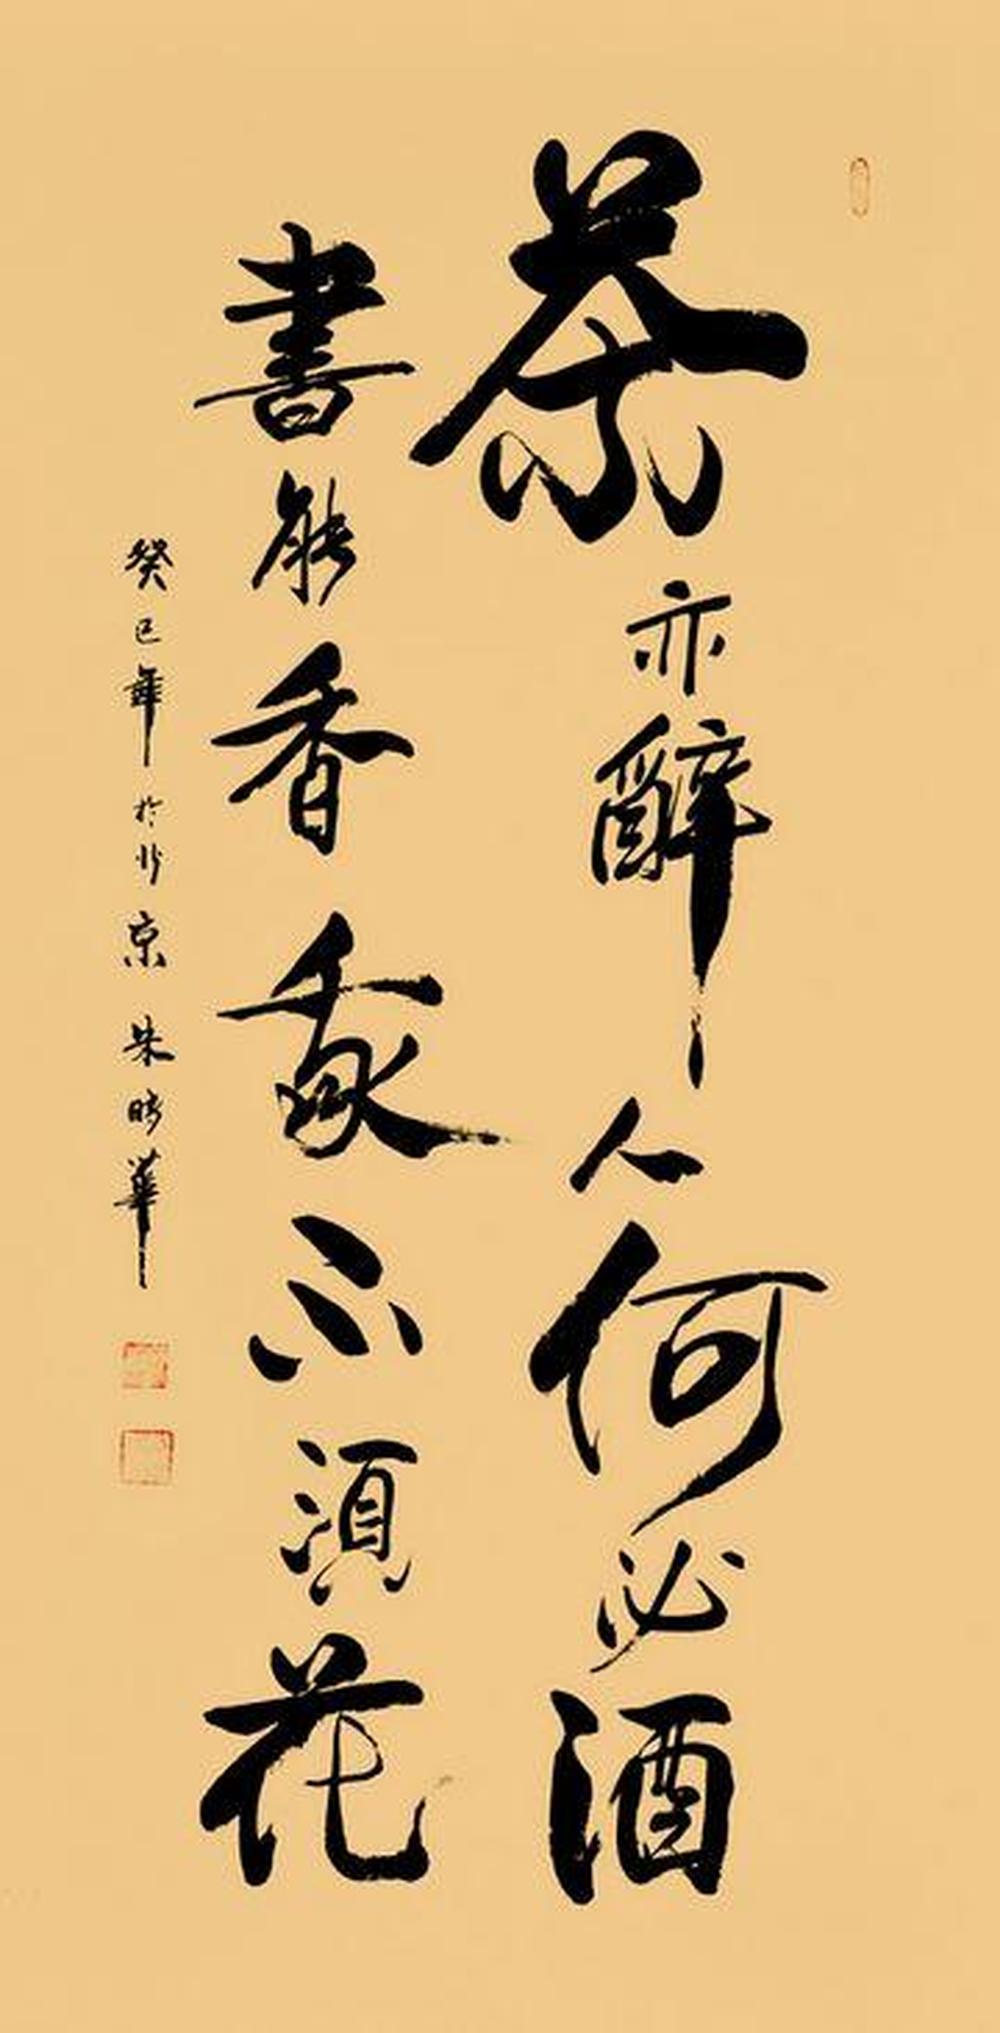 茶亦醉人何必酒
書能香我不須花
癸巳年於北京 朱 華